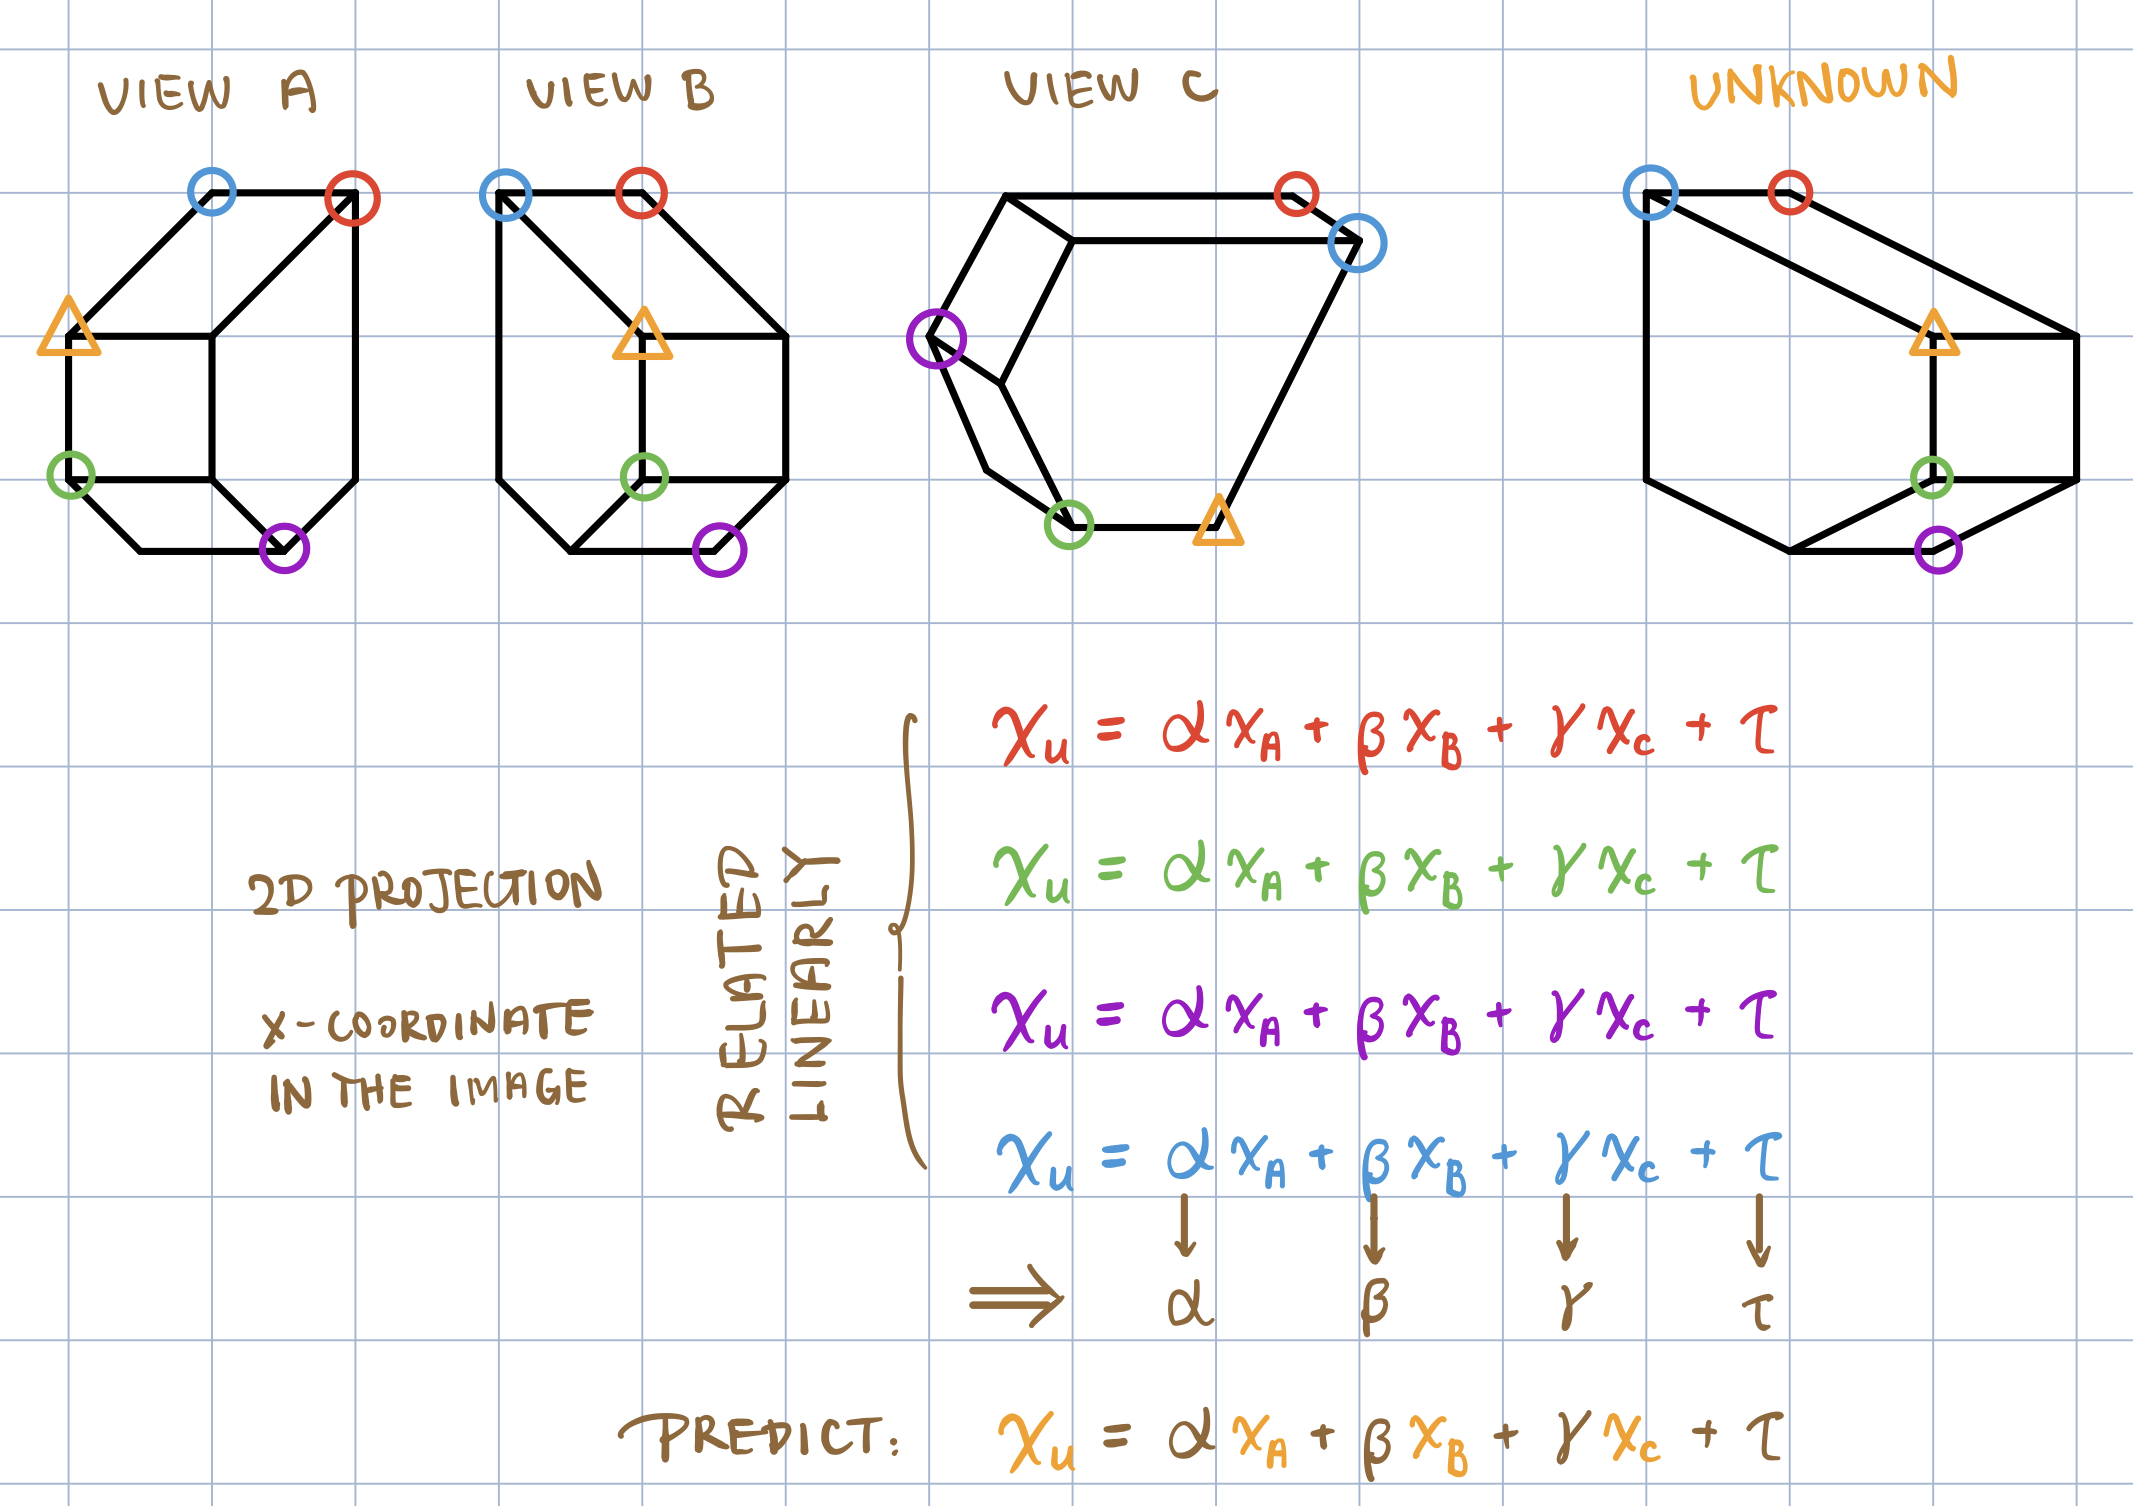 VIEW A
VIEW B
VIEW C
UNKNOWN
2D PROJECTION
X-COORDINATE
IN THE IMAGE
RELATED
LINEARLY
x_u = α x_A + β x_B + γ x_C + τ
x_u = α x_A + β x_B + γ x_C + τ
x_u = α x_A + β x_B + γ x_C + τ
x_u = α x_A + β x_B + γ x_C + τ
⇒ α β γ τ
PREDICT: x_u = α x_A + β x_B + γ x_C + τ